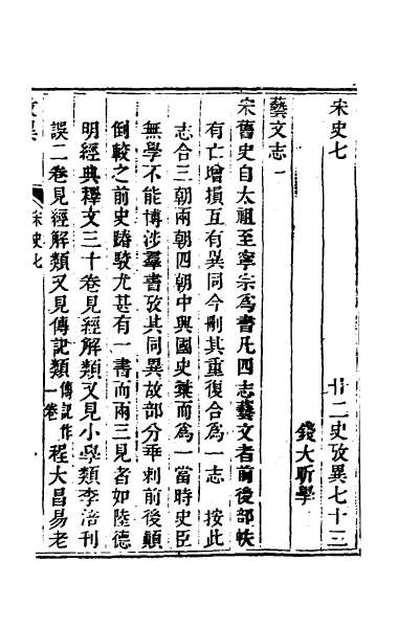 宋史七 廿二史攷異七十三
錢大昕學
藝文志一
宋舊史自太祖至寧宗爲書凡四志藝文者前後部帙
有亡增損互有異同今刪其重復合爲一志 按此
志合三朝兩朝四朝中興國史彙而爲一當時史臣
無學不能博涉羣書攷其同異故部分乖剌前後顛
倒較之前史踳駁尤甚有一書而兩三見者如陸德
明經典釋文三十卷見經解類又見小學類李涪刊
誤二卷見經解類又見傳記類傳記作一卷程大昌易老
宋史七